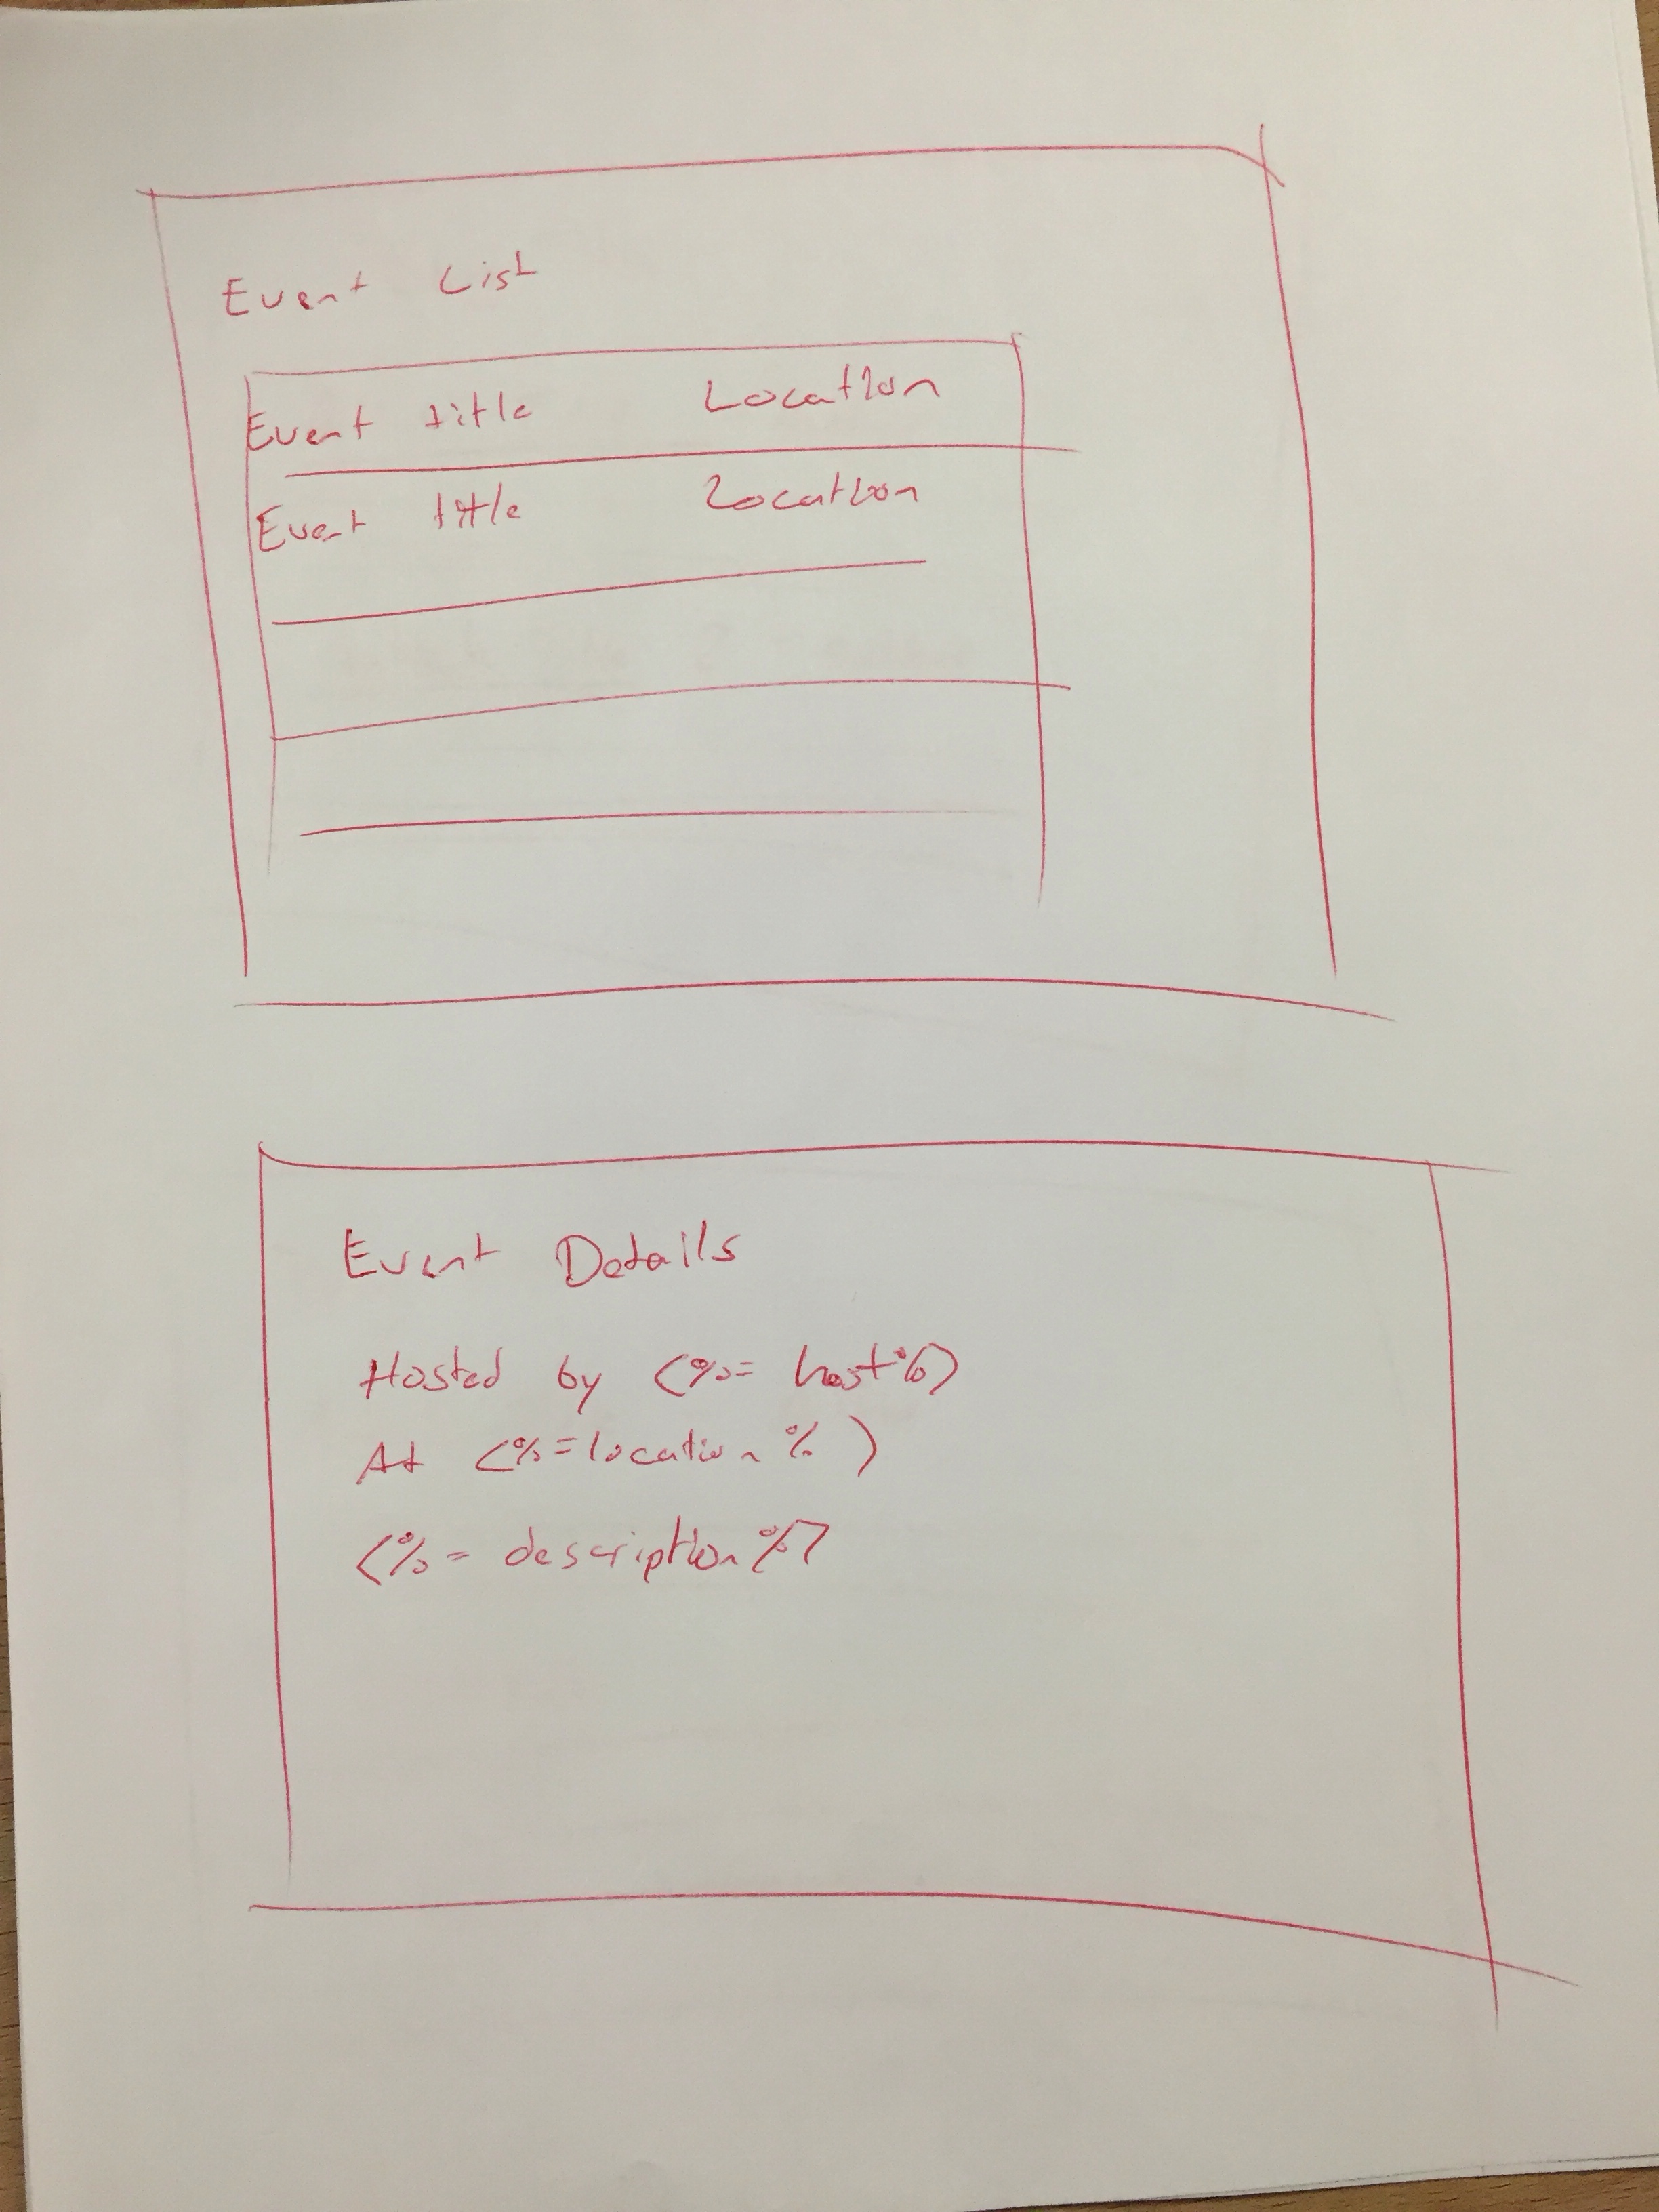 Event List
Event title Location
Event title Location
Event Details
Hosted by <%= host%>
At <%=location %>
<%= description%>